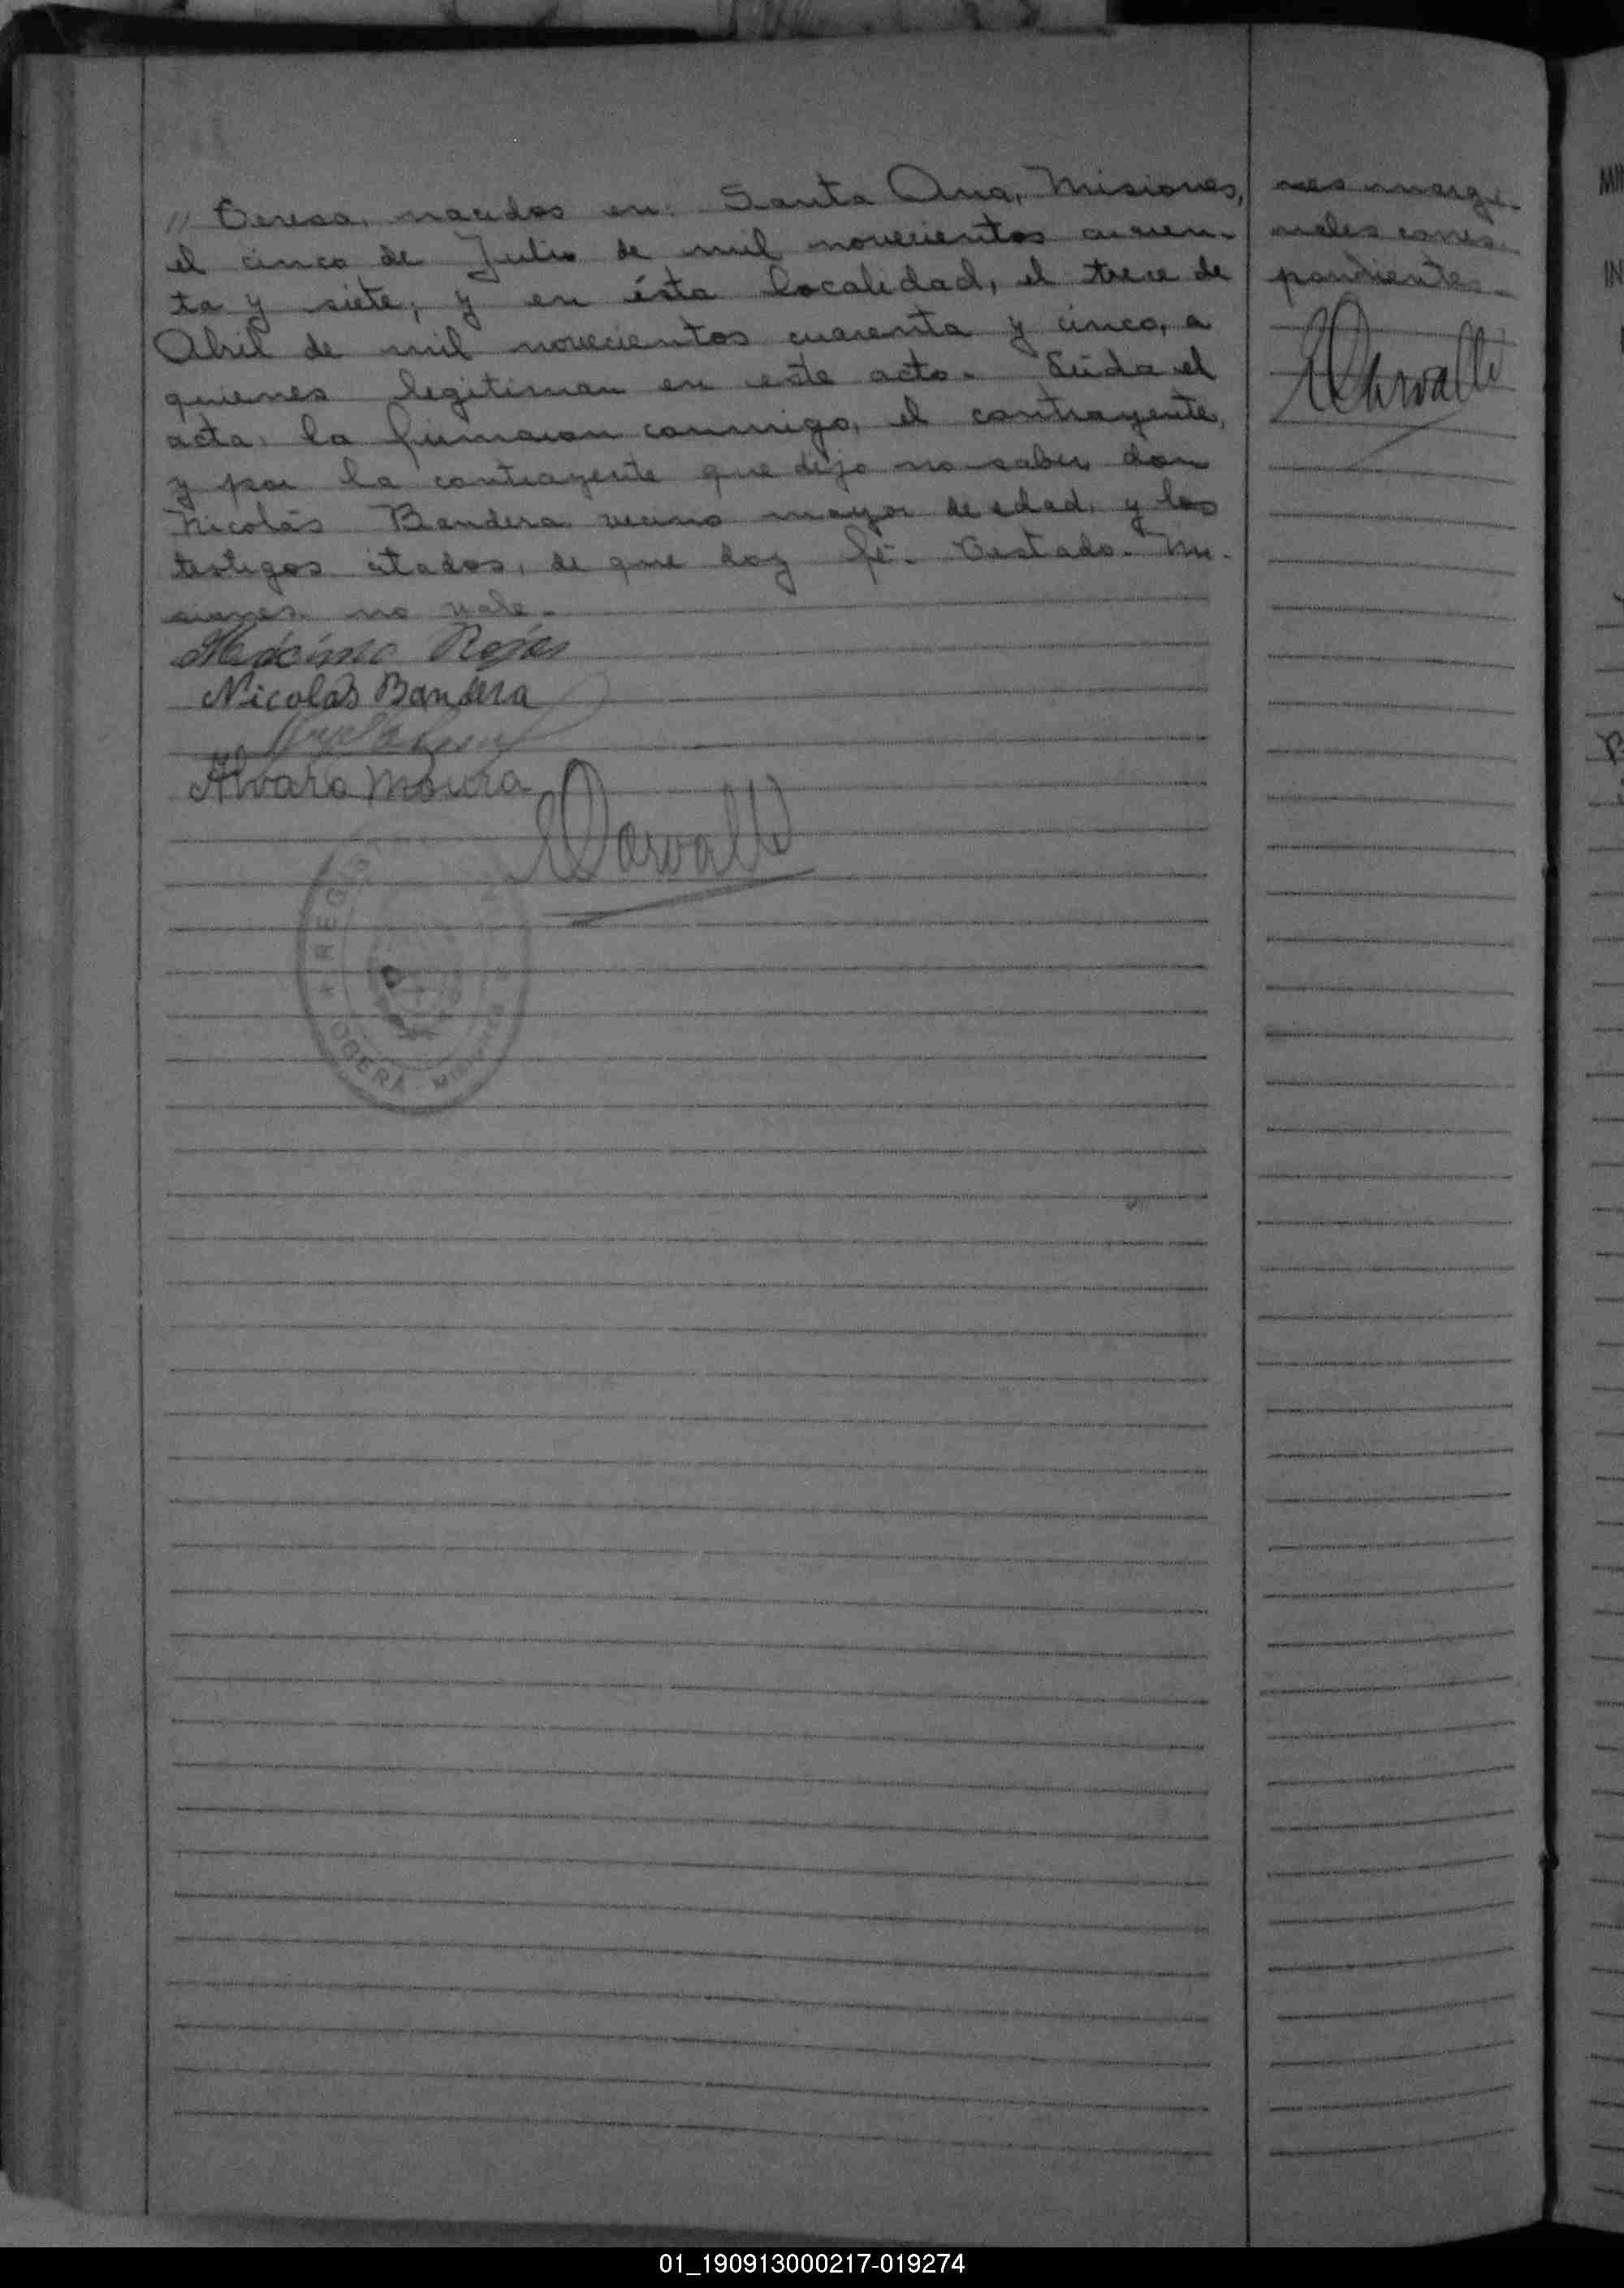 // Teresa, nacidos en: Santa Ana, Misiones,
el cinco de Julio de mil novecientos cuaren-
ta y siete; y en ésta localidad, el trece de
Abril de mil novecientos cuarenta y cinco, a
quienes legitiman en este acto. Leida el
acta, la firmaron conmigo, el contrayente,
y por la contrayente que dijo no saber, don
Nicolás Bandera vecino mayor de edad, y los
testigos citados, de que doy fé. Testado. Mi-
siones. no vale.
Máximo Rojas
Nicolás Bandera
Alvaro Moura
Carvallo
REGIS
OBERÁ - MISIONES
nes margi-
nales corres-
pondientes.
Carvallo
MI
IN
01_190913000217-019274